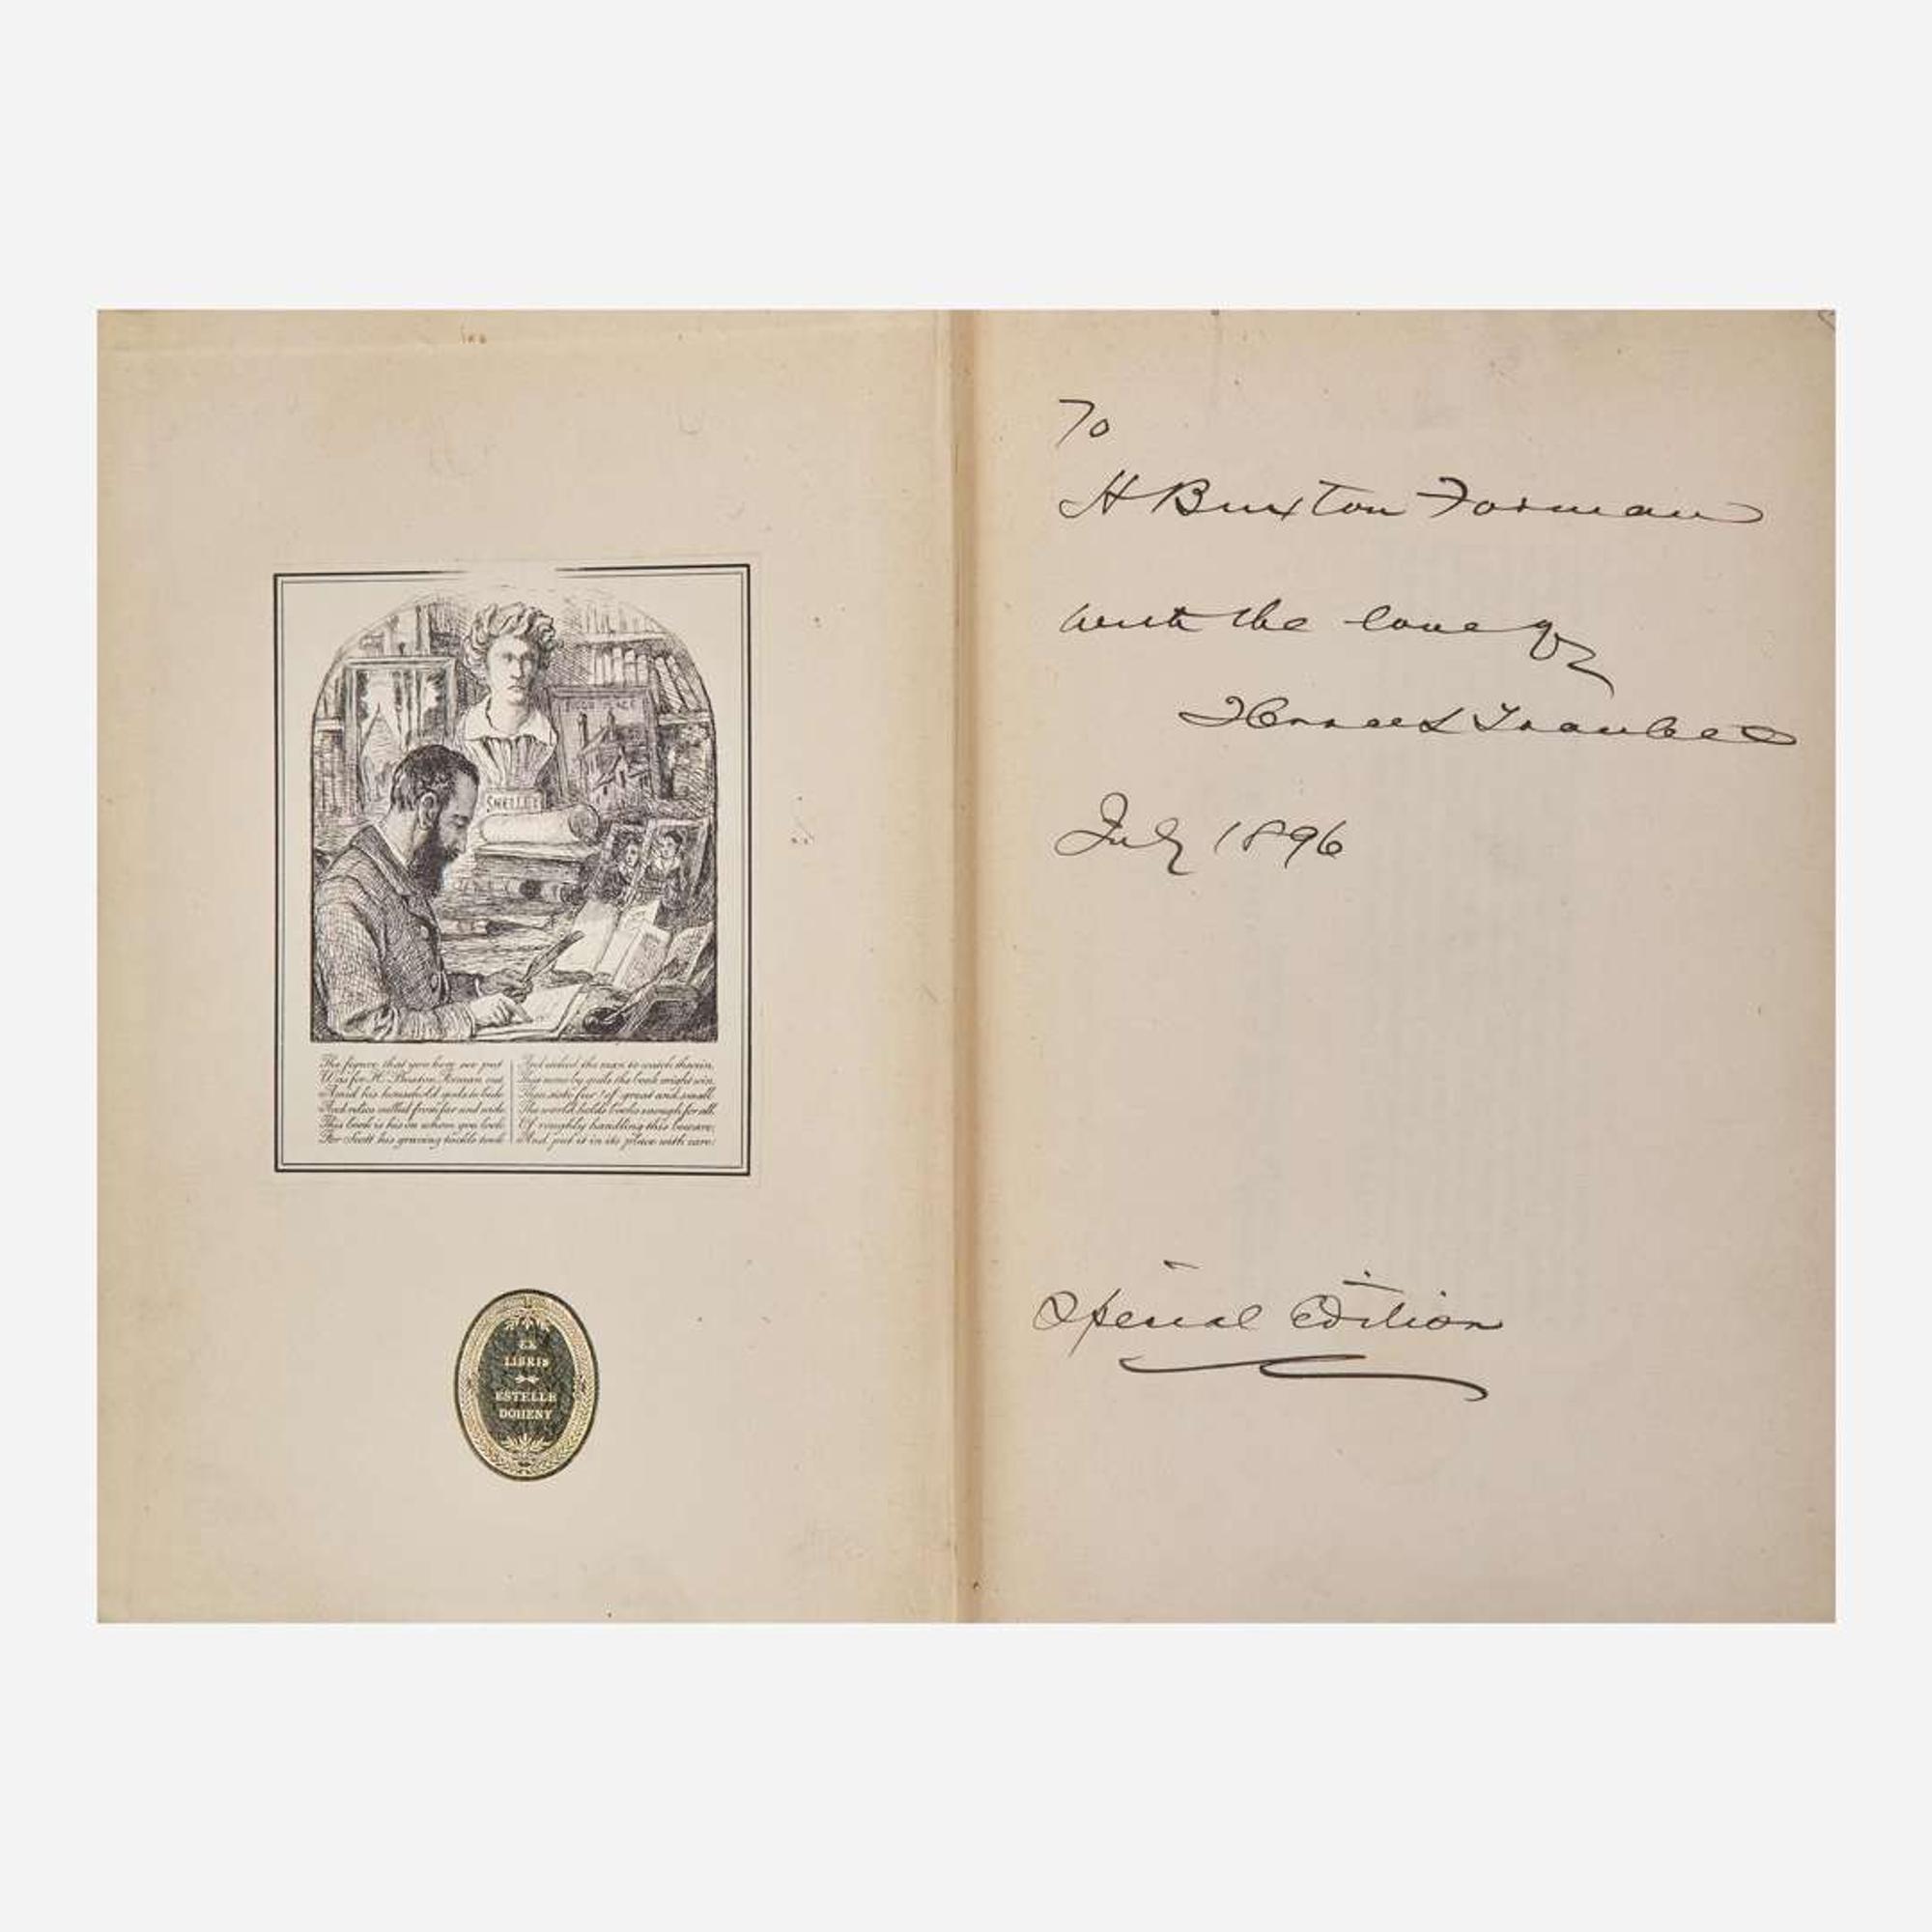 SHELLEY
The figure that you here see put
Was for H. Buxton Forman cut
Amid his household gods to bide
And relics culled from far and wide
This book is his on whom you look
For Scott his graving tackle took
And asked the man to watch therein,
by guile the book might win.
of great and small
The world holds books enough for all.
Of roughly handling this beware;
And put it in its place with care:
EX
LIBRIS
ESTELLE
DOHENY
To
H Buxton Forman
with the love of
Horace L Traubel
July 1896
Special Edition